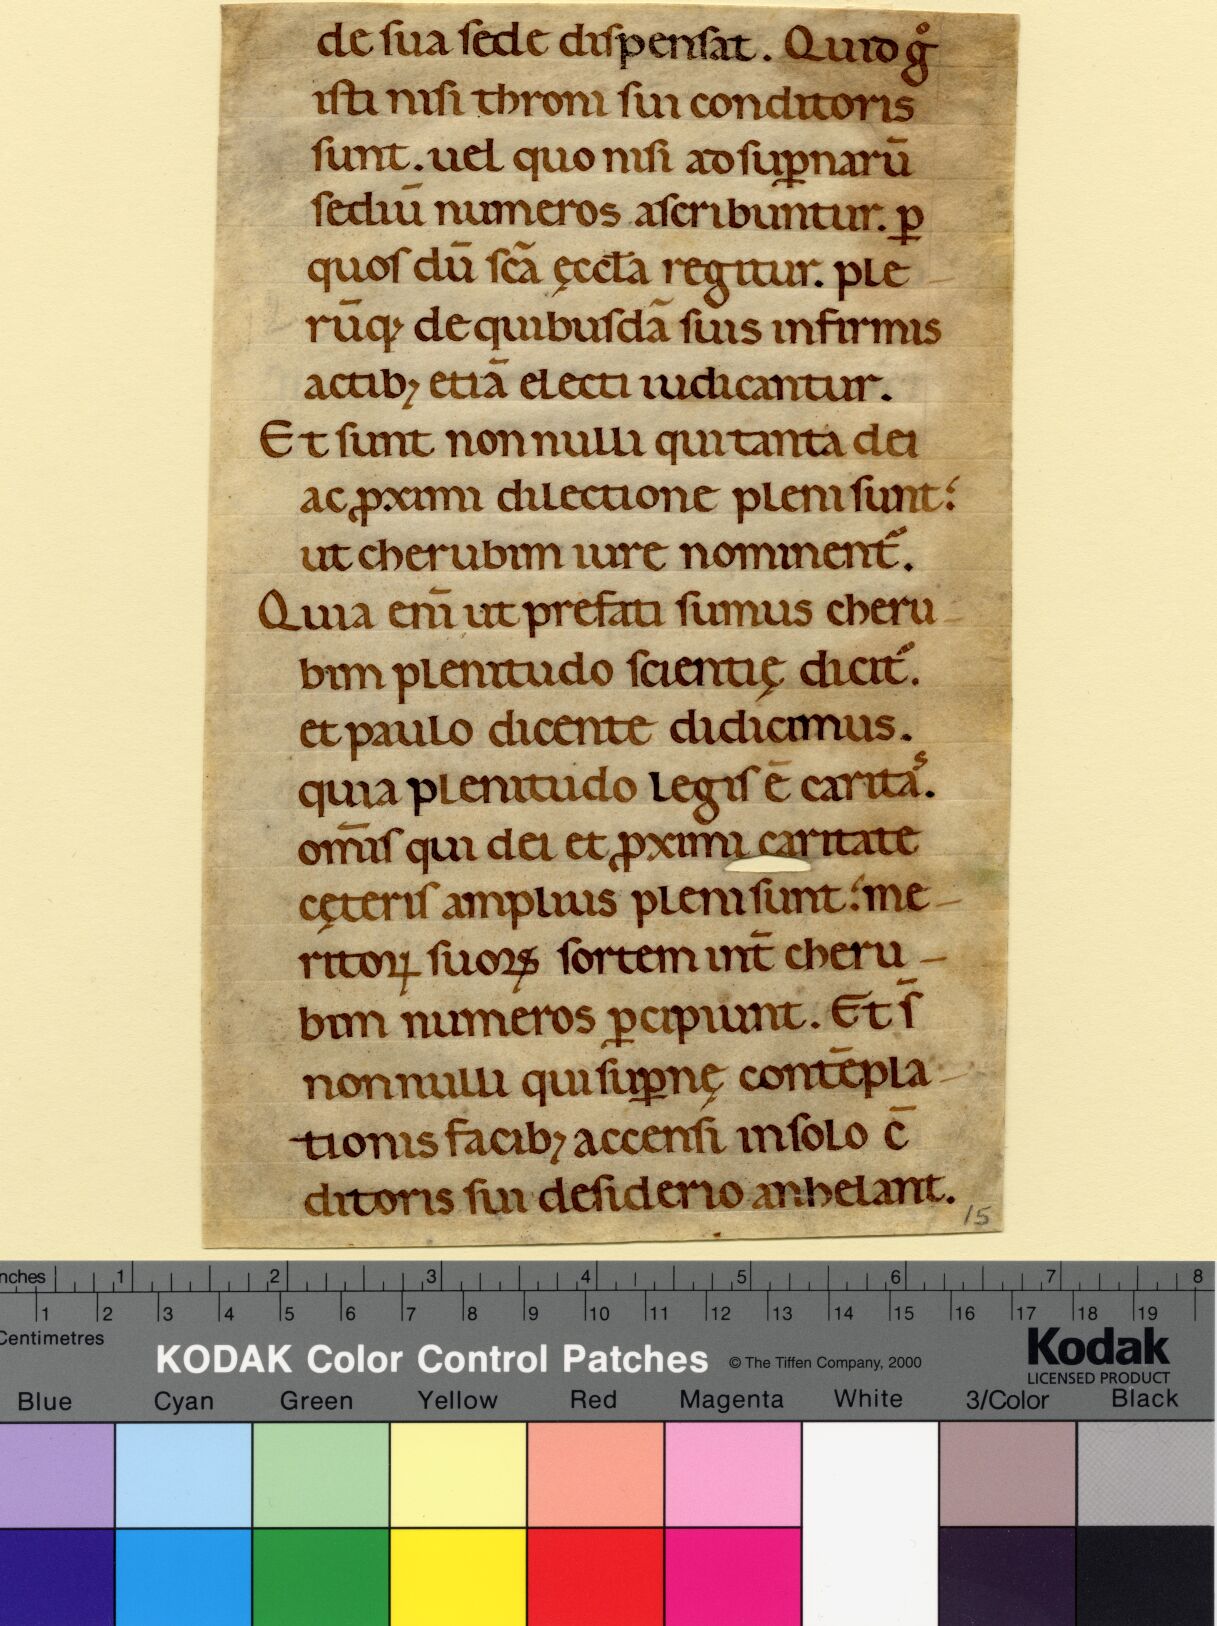 de sua sede dispensat. Quid gͦ
isti nisi throni sui conditoris
sunt. uel quo nisi ad suꝑnarū
sediū numeros ascribuntur. ꝑ
quos dū scā ęccła regitur. ple-
rūq; de quibusdā suis infirmis
actib; etiā electi iudicantur.
Et sunt nonnulli qui tanta dei
ac ꝓximi dilectione pleni sunt:
ut cherubim iure nominent᷑.
Quia enī ut prefati sumus cheru-
bim plenitudo scientię dicit᷑.
et paulo dicente didicimus.
quia plenitudo legis ē caritaˢ.
om̄is qui dei et ꝓximi caritate
cęteris amplius pleni sunt: me-
ritoꝝ suoꝝ sortem int̄ cheru-
bim numeros ꝑcipiunt. Et s̄
nonnulli qui suꝑnę contēpla-
tionis facib; accensi in solo c̄
ditoris sui desiderio anhelant.
15
inches 1 2 3 4 5 6 7 8
1 2 3 4 5 6 7 8 9 10 11 12 13 14 15 16 17 18 19
Centimetres
KODAK Color Control Patches © The Tiffen Company, 2000 Kodak
LICENSED PRODUCT
Blue Cyan Green Yellow Red Magenta White 3/Color Black